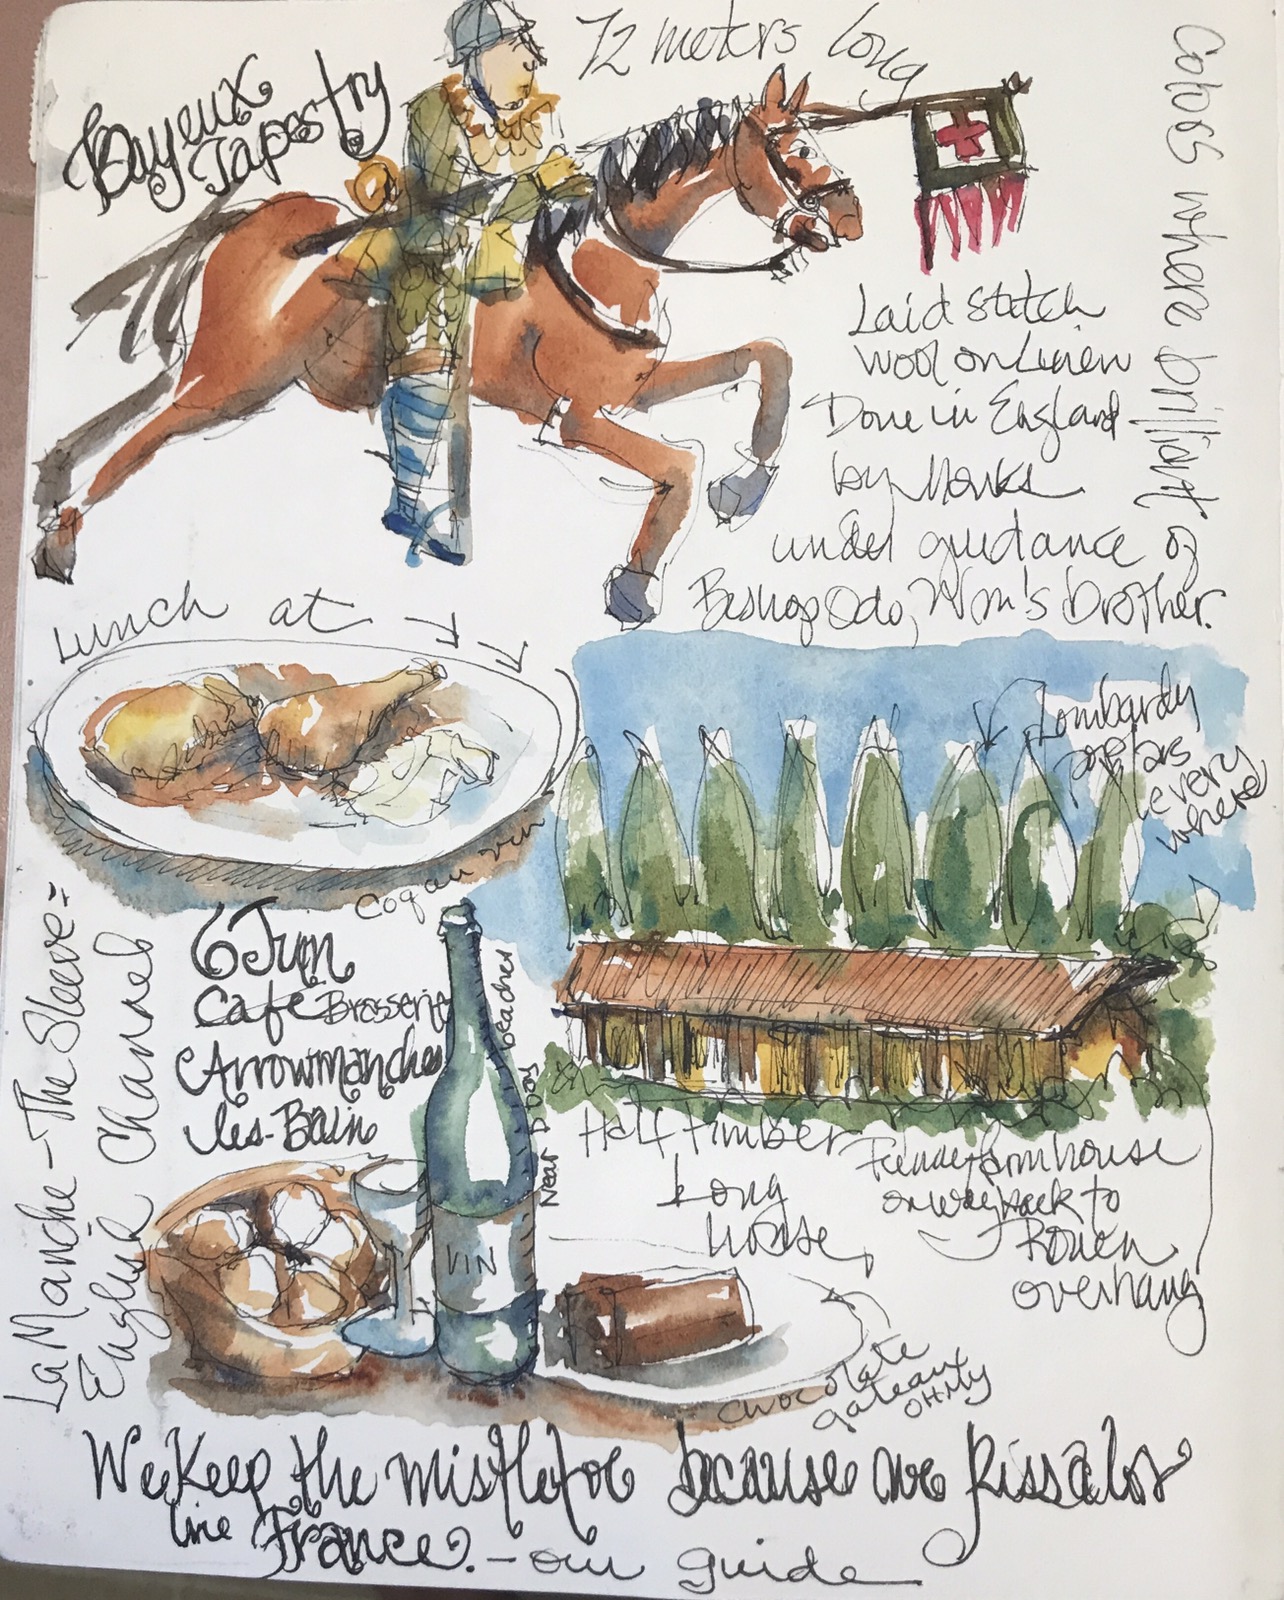 Bayeux
Tapestry
72 meters long
Colors where brilliant
Laid stitch
wool on Linen
Done in England
by Monks
under guidance of
Bishop Odo, Wm's brother.
Lunch at
Coq au vin
Lombardy
poplars
every
where
6 Juin
Cafe Brasserie
Arrowmanches
les-Bain
Near DDay beaches
La Manche - The Sleeve =
English Channel
VIN
Half timber
Long
house
farmhouse
on way back to
Rouen
overhang
chocolate
gateaux
OH My
We Keep the mistletoe because we kiss a lot
in France. - our guide